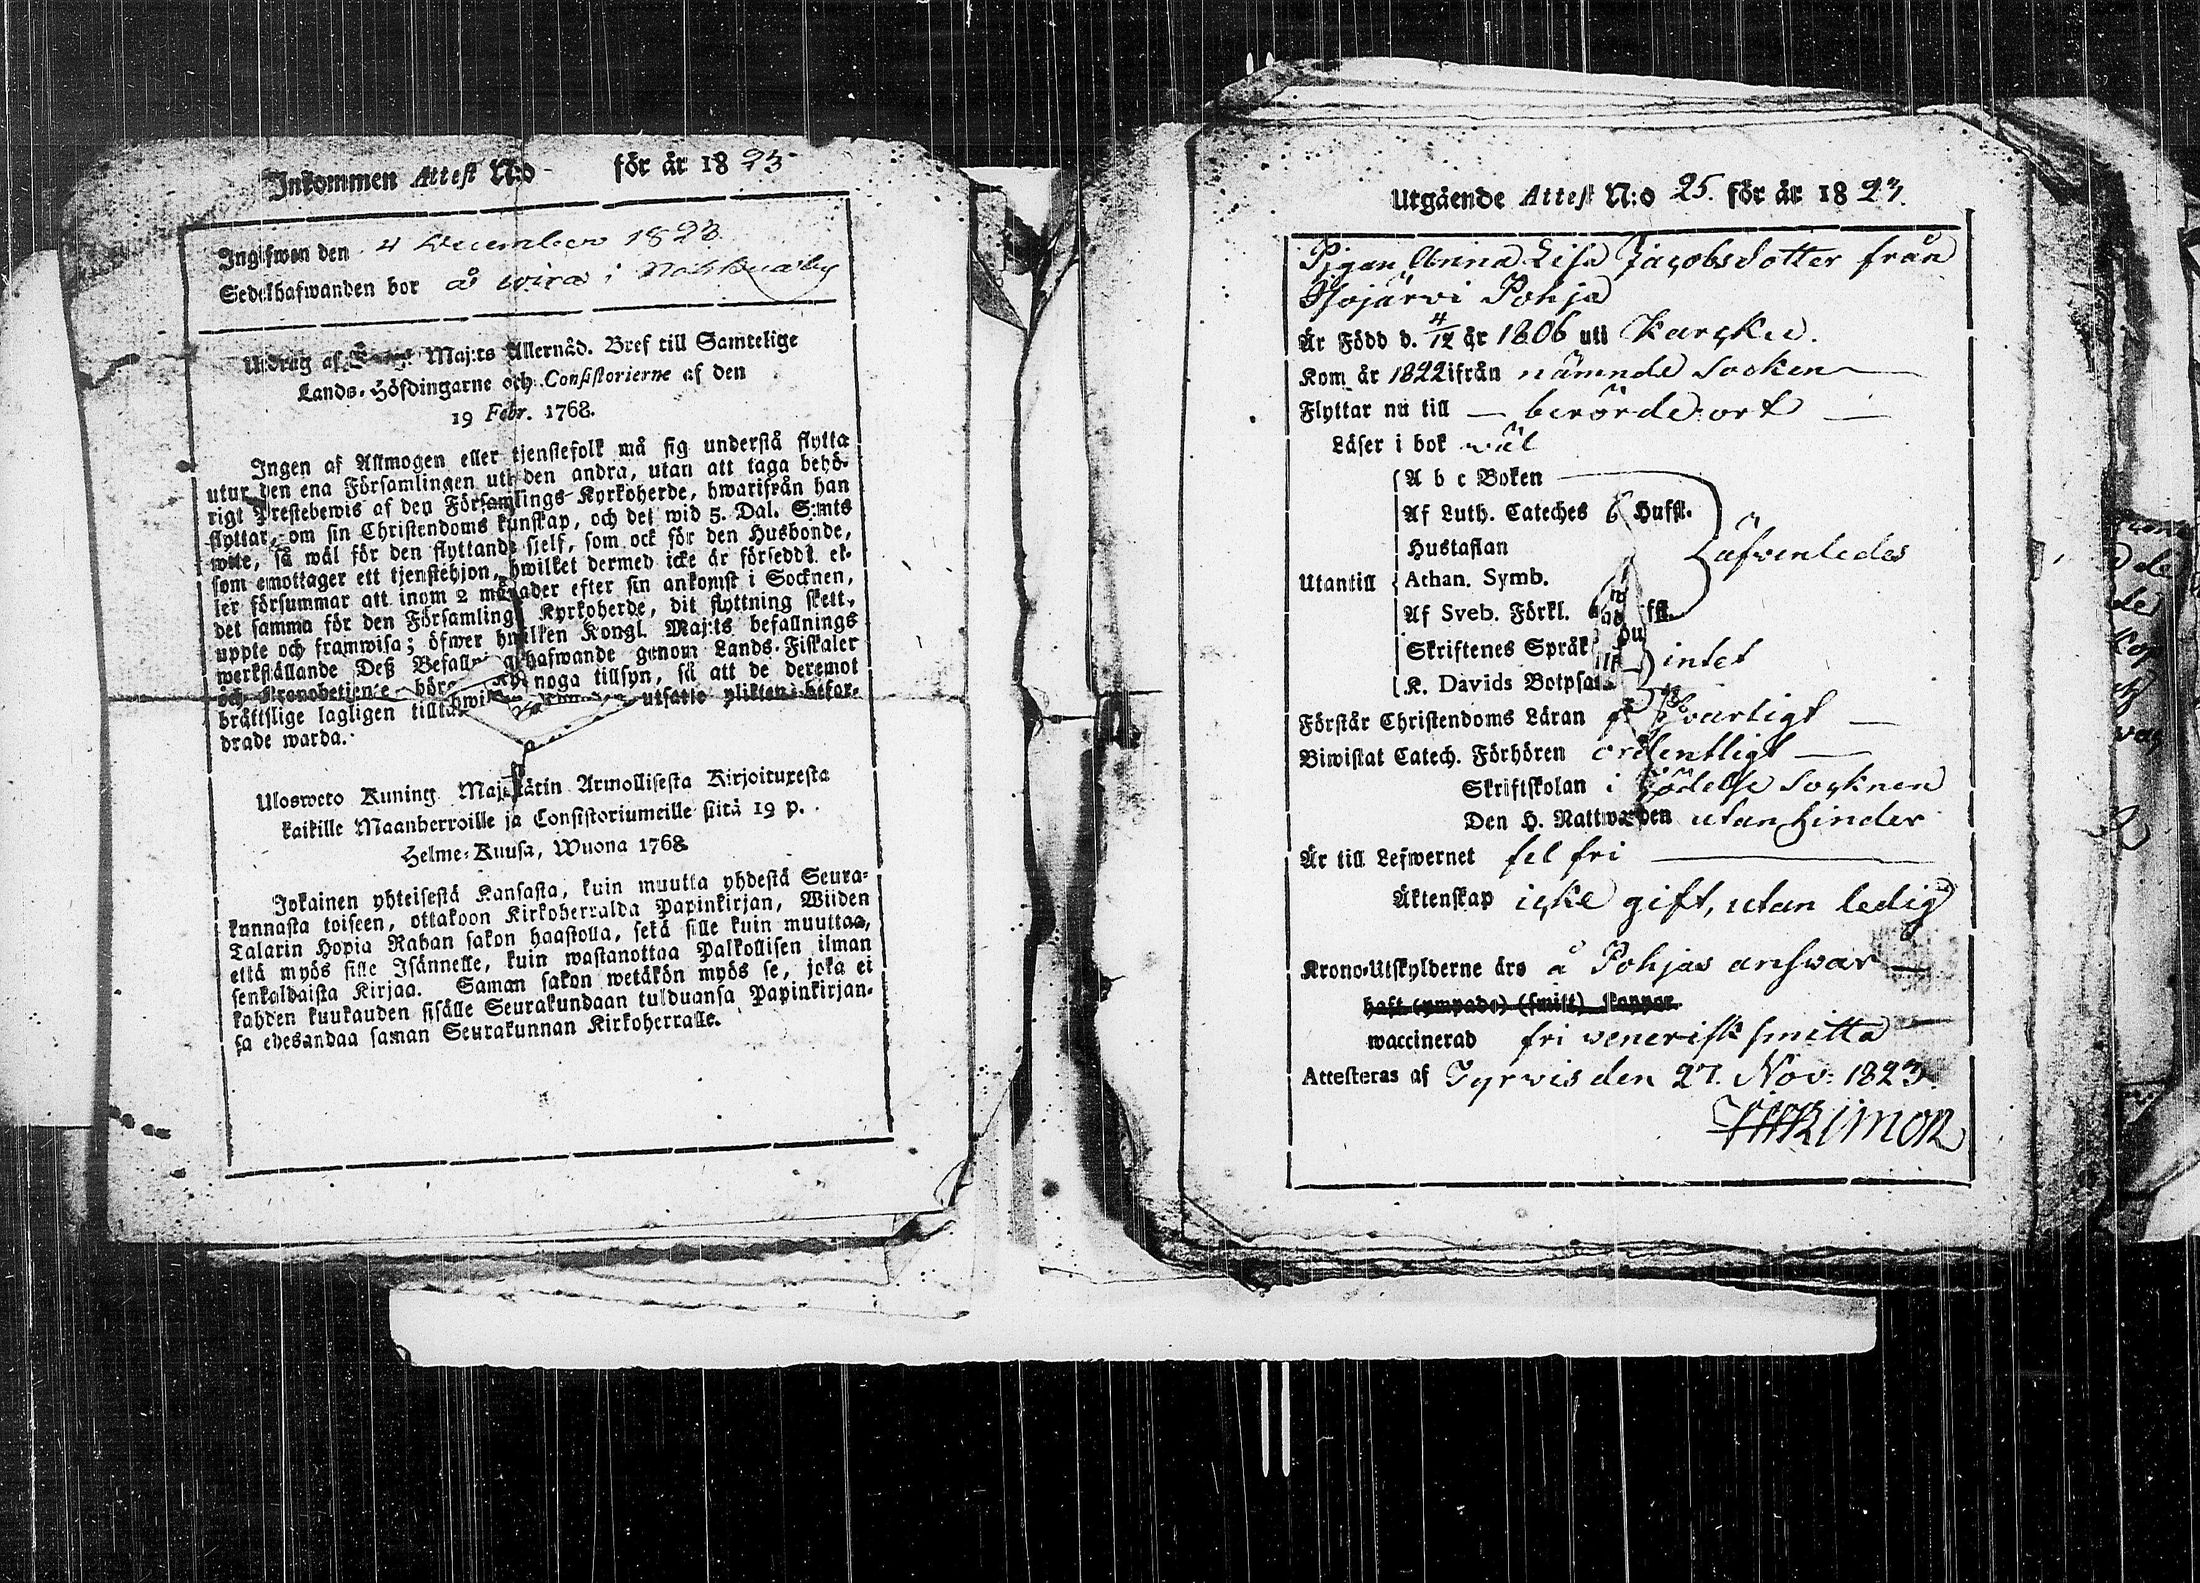 Inkommen Attest N:o för år 1823
Ingifwen den 4 December 1823
Sedelhafwanden bor å wira i Nohkuaby
Utdrag af Maj:ts Allernåd. Bref till Samtelige
Lands-Höfdingarne och Consistorierne af den
19 Febr. 1768.
Ingen af Allmogen eller tjenstefolk må sig understå flytta
utur den ena Församlingen uti den andra, utan att taga behö-
rigt Prestebewis af den Församlings-Kyrkoherde, hwarifrån han
flyttar, om sin Christendoms kunskap, och det wid 5. Dal. S:mts
wite, så wäl för den flyttande sjelf, som ock för den Husbonde,
som emottager ett tjenstehjon, hwilket dermed icke är förseddt el-
ler försummar att inom 2 månader efter sin ankomst i Socknen,
det samma för den Församlings Kyrkoherde, dit flyttning skett,
uppte och framwisa; öfwer hwilken Kongl. Maj:ts befallnings
werkställande Deß Befallningshafwande genom Lands-Fiskaler
och Kronobetjente böra noga tillsyn, så att de deremot
brättslige lagligen utsatte plikten befor-
drade warda.
Ulosweto Kuning. Majestätin Armollisesta Kirjoituxesta
kaikille Maanherroille ja Consistoriumeille siitä 19 p.
Helme-Kuusa, Wuona 1768.
Jokainen yhteisestä Kansasta, kuin muutta yhdestä Seura-
kunnasta toiseen, ottakoon Kirkoherralda Papinkirjan, Wiiden
Talarin Hopia Rahan sakon haastolla, sekä sille kuin muuttaa,
että myös sille Isännelle, kuin wastanottaa Palkollisen ilman
senkaldaista Kirjaa. Saman sakon wetäkön myös se, joka ei
kahden kuukauden sisälle Seurakundaan tulduansa Papinkirjan-
sa edesandaa saman Seurakunnan Kirkoherralle.
Utgående Attest N:o 25. för år 1823.
Pigan Anna Lisa Jacobsdotter från
Isojärvi Pohja
Är Född d. 4/12 år 1806 uti Karcku.
Kom år 1822 ifrån nämnde Socken
Flyttar nu till berörde ort
Läser i bok wäl
A b c Boken
Af Luth. Cateches 6 Hufst.
Hustaflan äfvenledes
Utantill Athan. Symb.
Af Sveb. Förkl.
Skriftenes Språk intet
K. Davids Botpsal
Förstår Christendoms Läran försvarligt
Biwistat Catech. Förhören ordentligt
Skriftskolan i Födelse Socknen
Den H. Nattwarden utan hinder
Är till Lefwernet fel fri
Äktenskap icke gift, utan ledig
Krono-Utskylderne äro å Pohjas answar
haft (ympade) (smitt) koppor
waccinerad fri venerisk smitta
Attesteras af Tyrvis den 27. Nov: 1823.